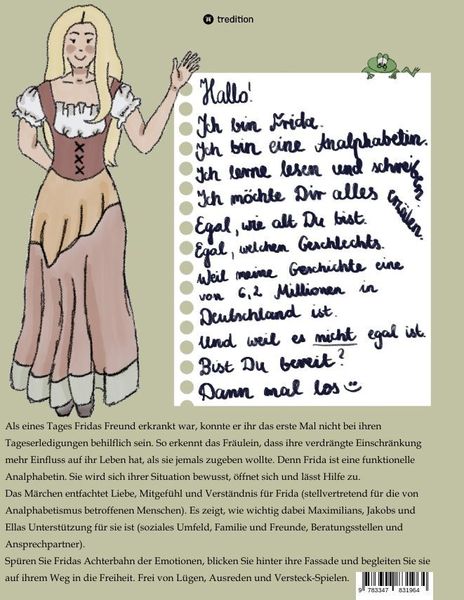 tredition
Hallo!
Ich bin Frida.
Ich bin eine Analphabetin.
Ich lerne lesen und schreiben.
Ich möchte Dir alles erzälen.
Egal, wie alt Du bist.
Egal, welchen Geschlechts.
Weil meine Geschichte eine
von 6,2 Millionen in
Deutschland ist.
Und weil es nicht egal ist.
Bist Du bereit?
Dann mal los
Als eines Tages Fridas Freund erkrankt war, konnte er ihr das erste Mal nicht bei ihren
Tageserledigungen behilflich sein. So erkennt das Fräulein, dass ihre verdrängte Einschränkung
mehr Einfluss auf ihr Leben hat, als sie jemals zugeben wollte. Denn Frida ist eine funktionelle
Analphabetin. Sie wird sich ihrer Situation bewusst, öffnet sich und lässt Hilfe zu.
Das Märchen entfachtet Liebe, Mitgefühl und Verständnis für Frida (stellvertretend für die von
Analphabetismus betroffenen Menschen). Es zeigt, wie wichtig dabei Maximilians, Jakobs und
Ellas Unterstützung für sie ist (soziales Umfeld, Familie und Freunde, Beratungsstellen und
Ansprechpartner).
Spüren Sie Fridas Achterbahn der Emotionen, blicken Sie hinter ihre Fassade und begleiten Sie sie
auf ihrem Weg in die Freiheit. Frei von Lügen, Ausreden und Versteck-Spielen.
9 783347 831964